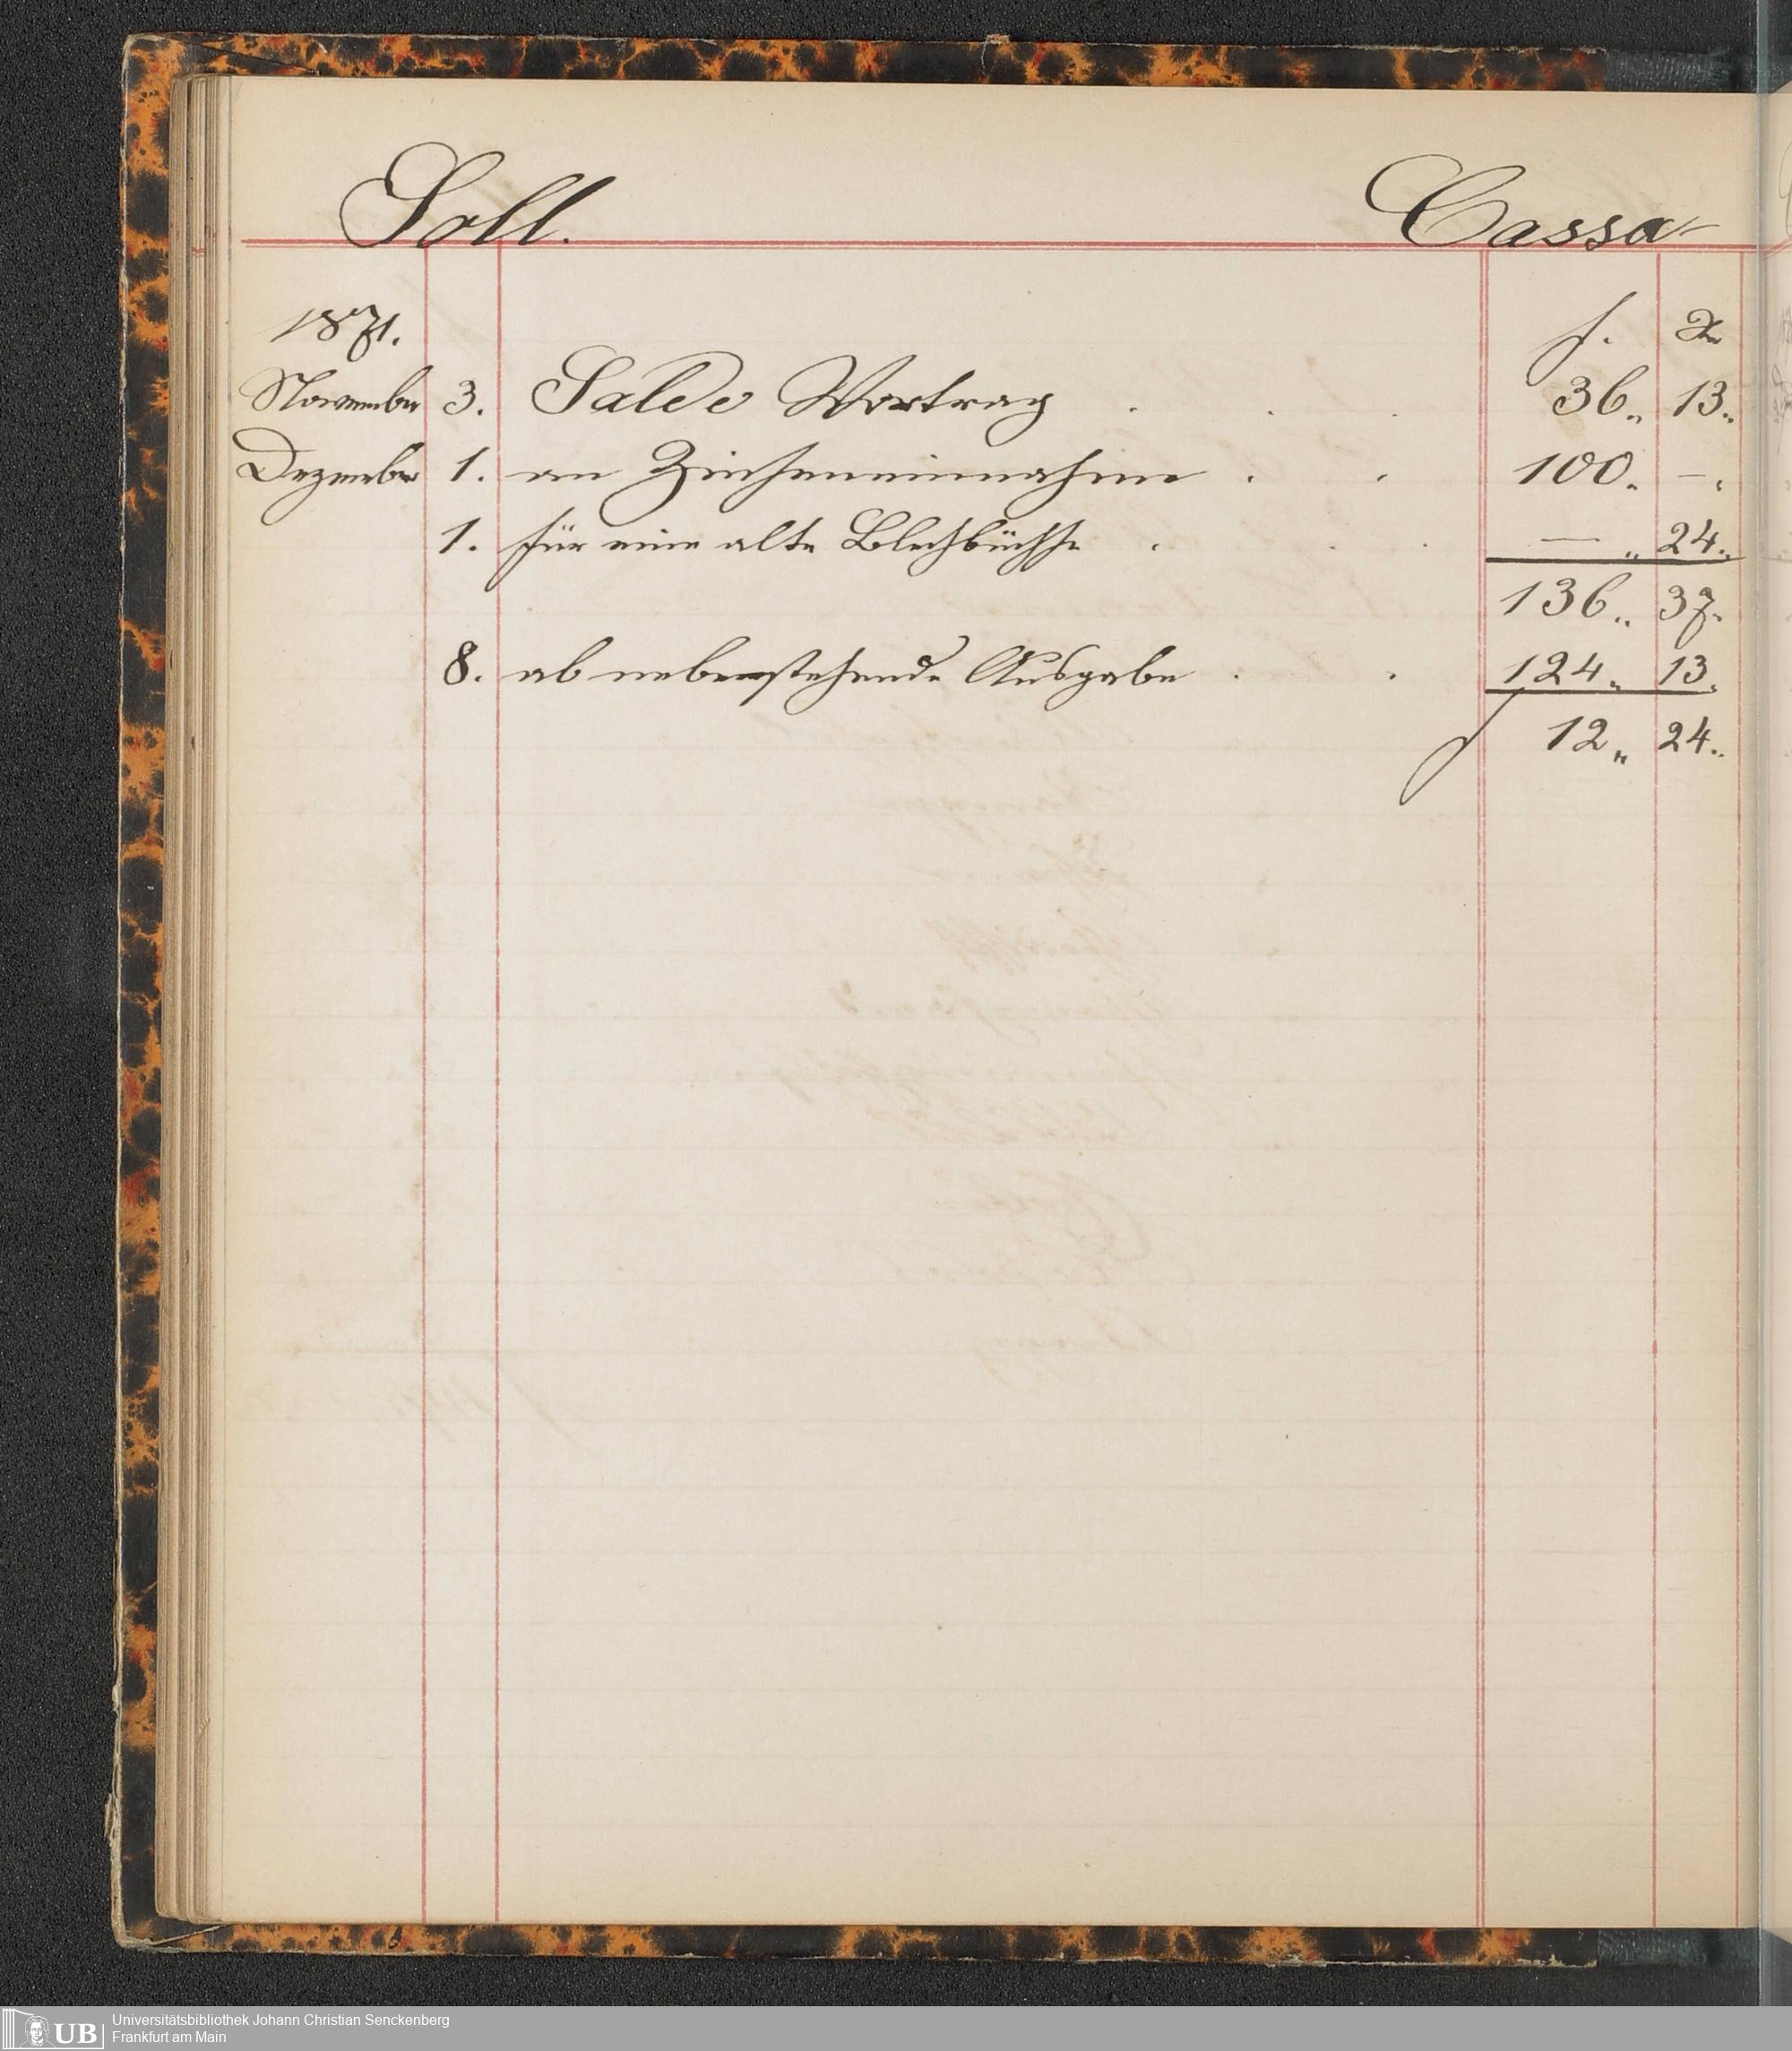 Soll. Cassa
1871. f. x
November 3. Saldo Vortrag . . . 36„ 13„
Dezember 1. an Zinseneinnahme . . 100. –„
1. für eine alte Blechbüchse . . . — „ 24„
136„ 37.
8. ab nebenstehende Ausgabe . . 124„ 13.
f 12„ 24„
Universitätsbibliothek Johann Christian Senckenberg
UB Frankfurt am Main